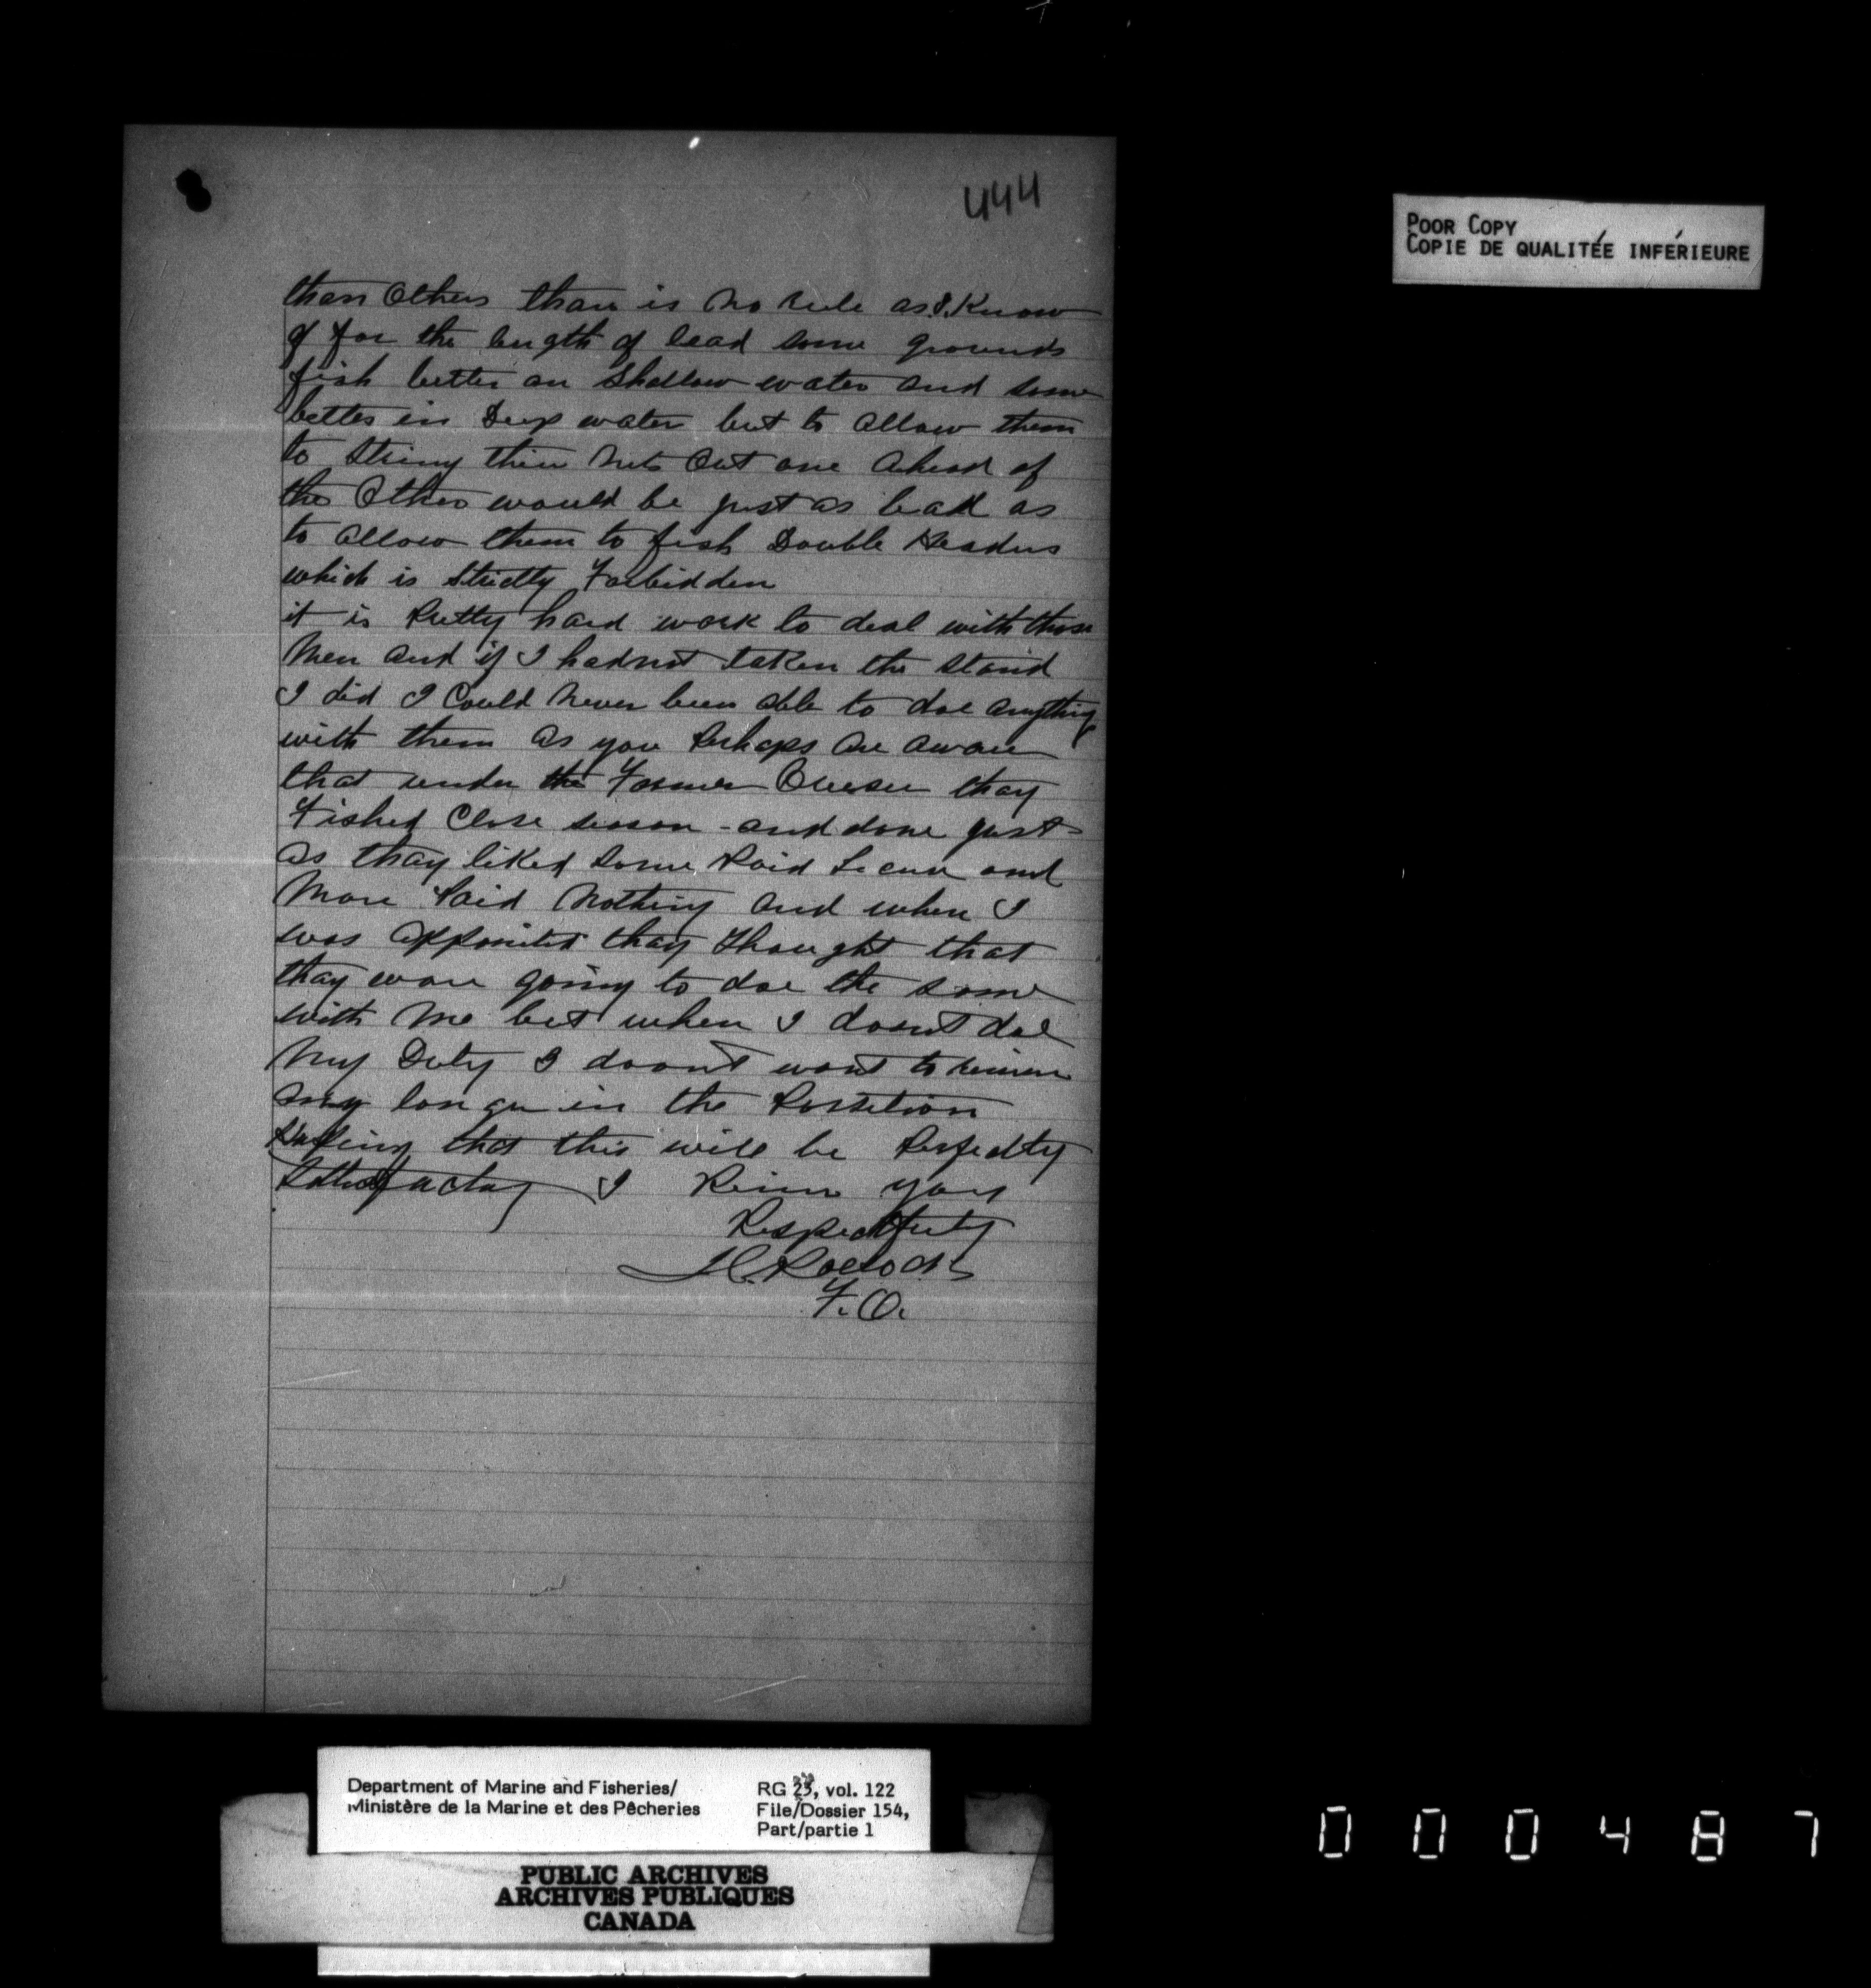 444
POOR COPY
COPIE DE QUALITÉE INFÉRIEURE
than Others thare is no rule as I Know
of for the length of lead some grounds
fish better on Shallow water and some
better in Deep water but to allow them
to String thier nets Out one Ahead of
the Other would be just as bad as
to allow them to fish Double Headers
which is Strictly Forbidden
it is Pretty hard work to deal with those
Men and if I hadnot taken the stand
I did I Could Never been able to doe anything
with them as you Perhaps are aware
that under the Former thay
Fished Close season - and done just
as thay liked some Paid Licence and
More Paid Nothing and when I
was appointed thay thought that
thay ware going to doe the same
with Me but when I doant doe
My Duty I doant want to
any longer in the Possition
that this will be Perfectly
I your
Respectfully
F. O.
Department of Marine and Fisheries/
Ministère de la Marine et des Pêcheries
RG 23, vol. 122
File/Dossier 154,
Part/partie 1
PUBLIC ARCHIVES
ARCHIVES PUBLIQUES
CANADA
000487